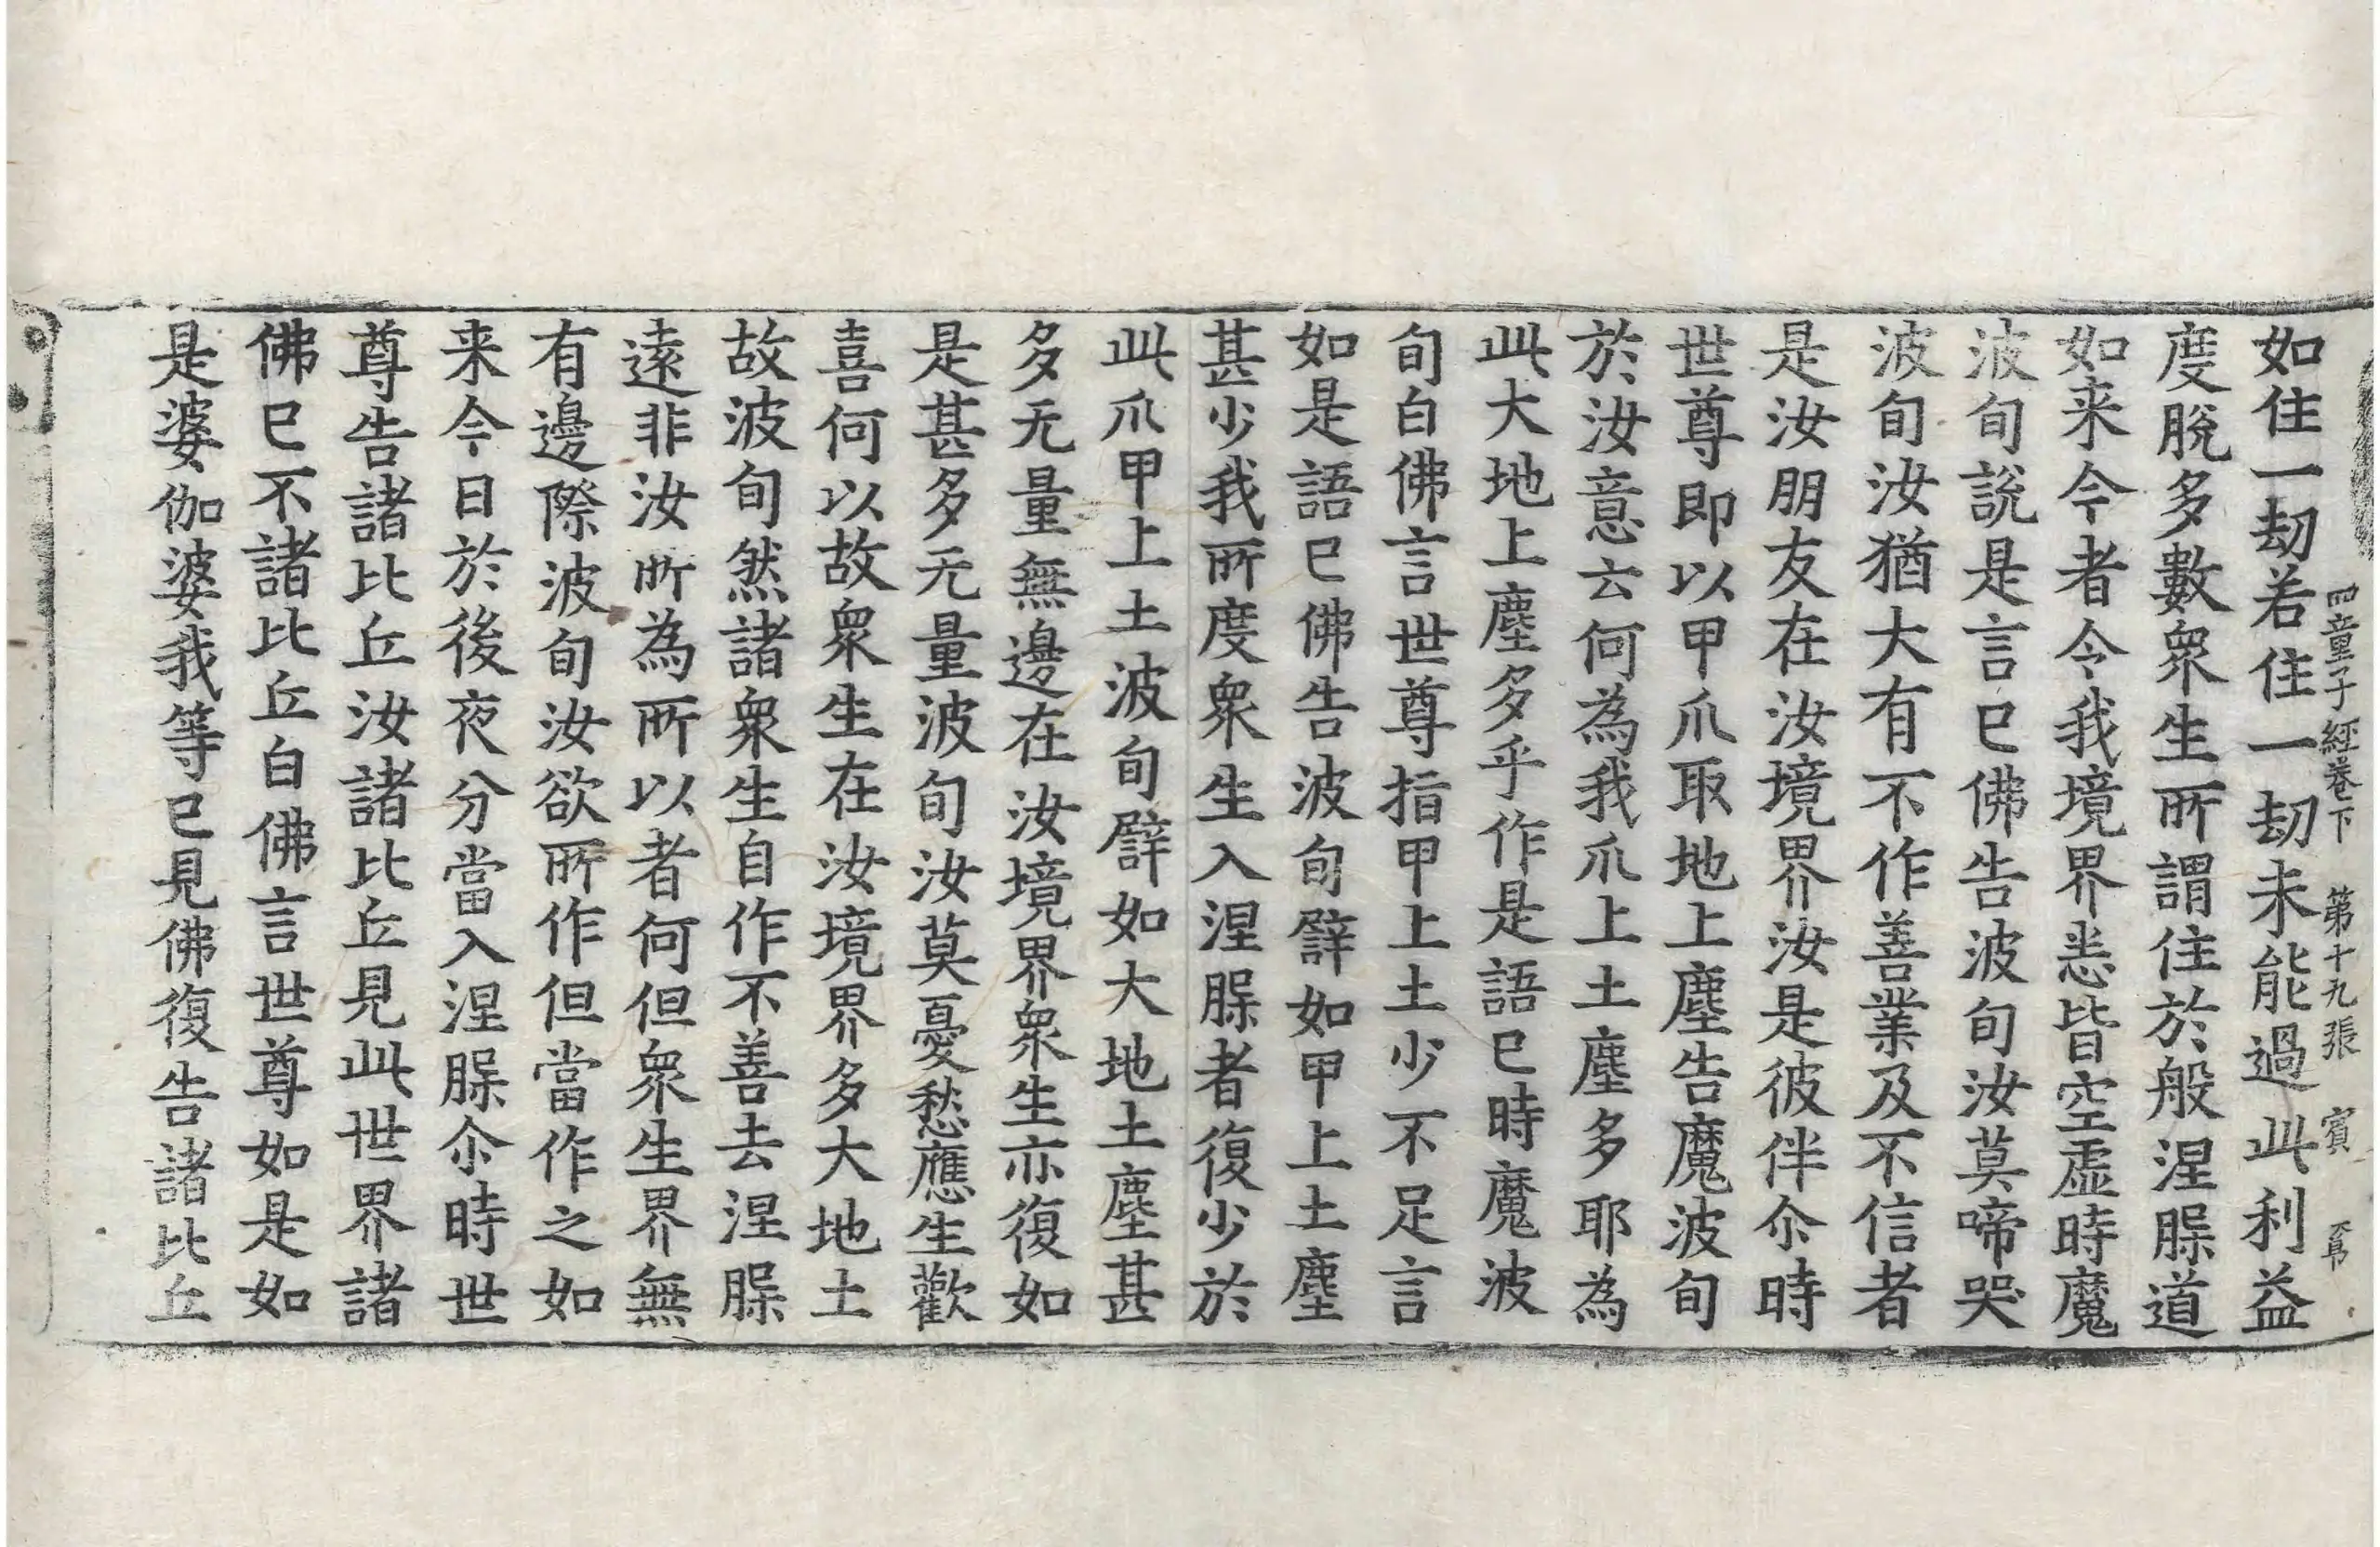 四童子經卷下 第十九張 賓
如住一劫若住一劫未能過此利益
度脫多數衆生所謂住於般涅槃道
如来今者令我境界悉皆空虛時魔
波旬說是言已佛告波旬汝莫啼哭
波旬汝猶大有不作善業及不信者
是汝朋友在汝境界汝是彼伴尒時
世尊即以甲爪取地上塵告魔波旬
於汝意云何為我爪上土塵多耶為
此大地上塵多乎作是語已時魔波
旬白佛言世尊指甲上土少不足言
如是語已佛告波旬譬如甲上土塵
甚少我所度衆生入涅槃者復少於
此爪甲上土波旬譬如大地土塵甚
多无量無邊在汝境界衆生亦復如
是甚多无量波旬汝莫憂愁應生歡
喜何以故衆生在汝境界多大地土
故波旬然諸衆生自作不善去涅槃
遠非汝所為所以者何但衆生界無
有邊際波旬汝欲所作但當作之如
来今日於後夜分當入涅槃尒時世
尊告諸比丘汝諸比丘見此世界諸
佛已不諸比丘白佛言世尊如是如
是婆伽婆我等已見佛復告諸比丘